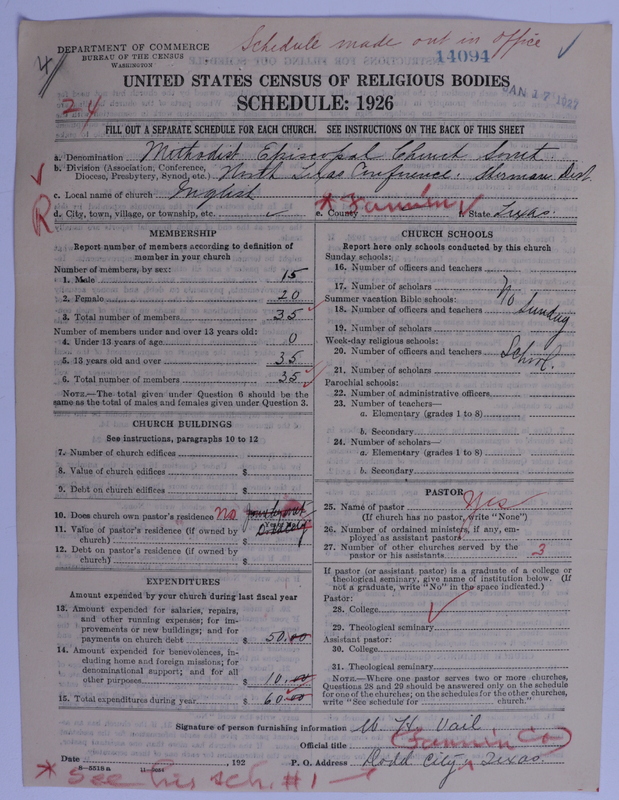 Schedule made out in office
4
DEPARTMENT OF COMMERCE
BUREAU OF THE CENSUS
WASHINGTON
14094
JAN 17 1927
UNITED STATES CENSUS OF RELIGIOUS BODIES
24
SCHEDULE: 1926
FILL OUT A SEPARATE SCHEDULE FOR EACH CHURCH. SEE INSTRUCTIONS ON THE BACK OF THIS SHEET
a. Denomination Methodist Episcopal Church South
b. Division (Association, Conference, Diocese, Presbytery, Synod, etc.) North Texas Conference. Sherman Dist.
c. Local name of church English
R
d. City, town, village, or township, etc. e. County * Fannin f. State Texas.
MEMBERSHIP
Report number of members according to definition of
member in your church
Number of members, by sex:
1. Male 15
2. Female 20
3. Total number of members 35
Number of members under and over 13 years old:
4. Under 13 years of age 0
5. 13 years old and over 35
6. Total number of members 35
NOTE.—The total given under Question 6 should be the
same as the total of males and females given under Question 3.
CHURCH BUILDINGS
See instructions, paragraphs 10 to 12
7. Number of church edifices
8. Value of church edifices $
9. Debt on church edifices $
10. Does church own pastor's residence No
11. Value of pastor's residence (if owned by
church) $
12. Debt on pastor's residence (if owned by
church) $
EXPENDITURES
Amount expended by your church during last fiscal year
13. Amount expended for salaries, repairs,
and other running expenses; for im-
provements or new buildings; and for
payments on church debt $ 50.00
14. Amount expended for benevolences, in-
cluding home and foreign missions; for
denominational support; and for all
other purposes $ 10.00
15. Total expenditures during year $ 60.00
CHURCH SCHOOLS
Report here only schools conducted by this church
Sunday schools:
16. Number of officers and teachers
17. Number of scholars No
Summer vacation Bible schools:
18. Number of officers and teachers Sunday
19. Number of scholars
Week-day religious schools:
20. Number of officers and teachers School.
21. Number of scholars
Parochial schools:
22. Number of administrative officers
23. Number of teachers—
a. Elementary (grades 1 to 8)
b. Secondary
24. Number of scholars—
a. Elementary (grades 1 to 8)
b. Secondary
PASTOR
25. Name of pastor Yes
(If church has no pastor, write "None")
26. Number of ordained ministers, if any, em-
ployed as assistant pastors
27. Number of other churches served by the
pastor or his assistants 3
If pastor (or assistant pastor) is a graduate of a college or
theological seminary, give name of institution below. (If
not a graduate, write "No" in the space indicated.)
Pastor:
28. College
29. Theological seminary
Assistant pastor:
30. College
31. Theological seminary
NOTE.—Where one pastor serves two or more churches,
Questions 28 and 29 should be answered only on the schedule
for one of the churches; on the schedules for the other churches,
write "See schedule for church."
Signature of person furnishing information W. H. Vail
Official title Fannin Co
Date , 192 P. O. Address Dodd City, Texas.
8—5518 a
* See his sch. #1